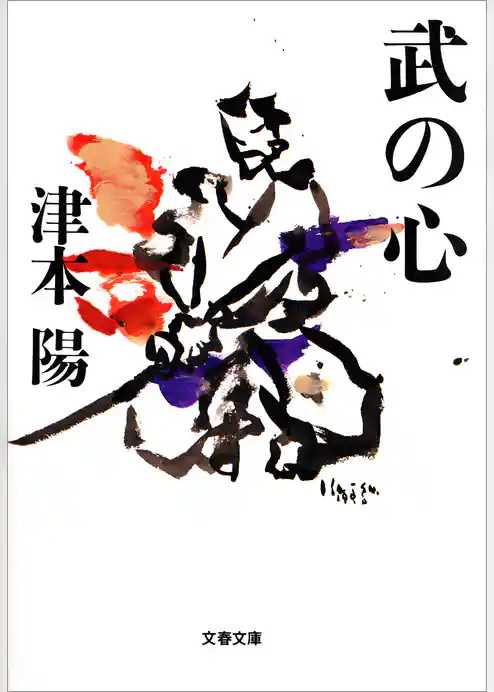 武の心
津本 陽
文春文庫